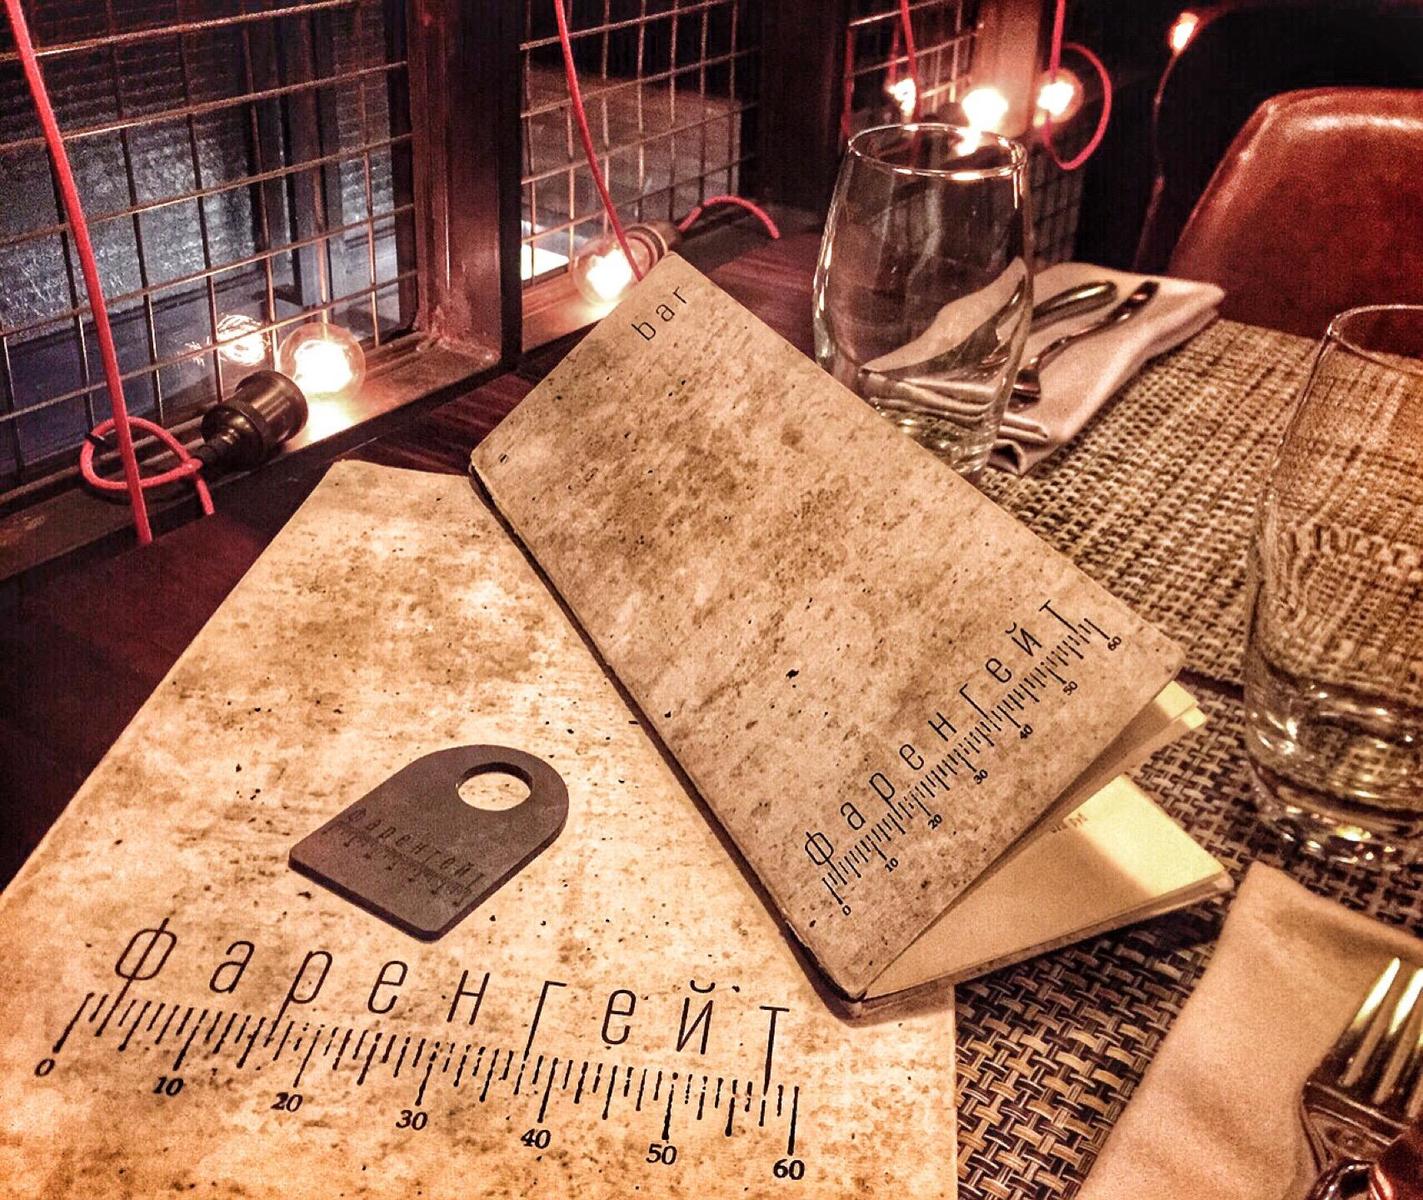 bar
фаренгейт
0 10 20 30 40 50 60
фаренгейт
фаренгейт
0 10 20 30 40 50 60